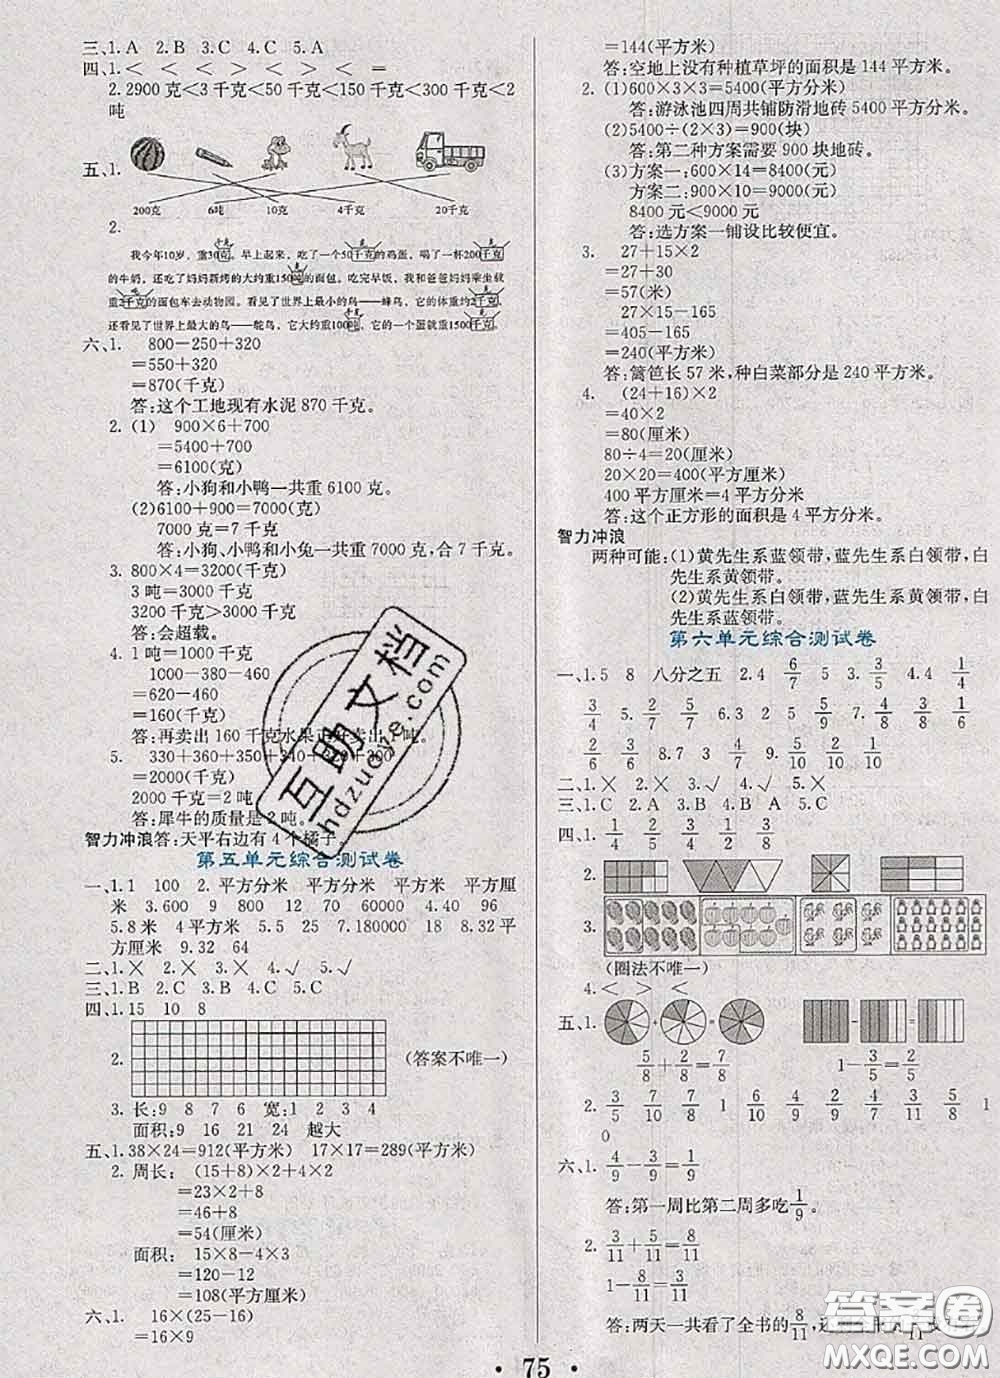 三、1.A 2.B 3.C 4.C 5.A
四、1.< < < > > > =
2.2900克<3千克<50千克<150千克<300千克<2
吨
五、1.
200克 6吨 10克 4千克 20千克
2.
我今年10岁，重30千克。早上起来，吃了一个50克的鸡蛋，喝了一杯200克
的牛奶，还吃了妈妈新烤的大约重100克的面包。吃完早饭，我和爸爸妈妈乘坐载
重2吨的面包车去动物园。看见了世界上最小的鸟——蜂鸟，它的体重约2克
还看见了世界上最大的鸟——鸵鸟，它大约重100千克，它的一个蛋就重1500克
六、1. 800-250+320
=550+320
=870(千克)
答:这个工地现有水泥 870 千克。
2.(1) 900×6+700
=5400+700
=6100(克)
答:小狗和小鸭一共重 6100 克。
(2)6100+900=7000(克)
7000 克=7 千克
答:小狗、小鸭和小兔一共重 7000 克,合 7 千克。
3. 800×4=3200(千克)
3 吨=3000 千克
3200 千克>3000 千克
答:会超载。
4. 1 吨=1000 千克
1000-380-460
=620-460
=160(千克)
答:再卖出 160 千克水果正好卖出 1 吨。
5. 330+360+350+340+300+320
=2000(千克)
2000 千克=2 吨
答:犀牛的质量是 2 吨。
智力冲浪答:天平右边有 4 个橘子。
第五单元综合测试卷
一、1.1 100 2.平方分米 平方厘米 平方米 平方厘
米 3.600 9 800 12 70 60000 4.40 96
5.8 米 4 平方米 5.5 25 7.180000 18 8.32 平
方厘米 9.32 64
二、1.× 2.× 3.× 4.√ 5.√
三、1.B 2.C 3.A 4.B 5.C
四、1.15 10 8
2. (答案不唯一)
3.长:9 8 7 6 宽:1 2 3 4
面积:9 16 21 24 越大
五、1.38×24=912(平方米) 17×17=289(平方米)
2. 周长: (15+8)×2+4×2
=23×2+8
=46+8
=54(厘米)
面积: 15×8-4×3
=120-12
=108(平方厘米)
六、1. 16×(25-16)
=16×9
=144(平方米)
答:空地上没有种植草坪的面积是 144 平方米。
2.(1)600×3×3=5400(平方分米)
答:游泳池四周共铺防滑地砖 5400 平方分米。
(2)5400÷(2×3)=900(块)
答:第二种方案需要 900 块地砖。
(3)方案一:600×14=8400(元)
方案二:900×10=9000(元)
8400 元<9000 元
答:选方案一铺设比较便宜。
3. 27+15×2
=27+30
=57(米)
27×15-165
=405-165
=240(平方米)
答:篱笆长 57 米,种白菜部分是 240 平方米。
4. (24+16)×2
=40×2
=80(厘米)
80÷4=20(厘米)
20×20=400(平方厘米)
400 平方厘米=4 平方分米
答:这个正方形的面积是 4 平方分米。
智力冲浪
两种可能:(1)黄先生系蓝领带,蓝先生系白领带,白
先生系黄领带。
(2)黄先生系白领带,蓝先生系黄领带,白
先生系蓝领带。
第六单元综合测试卷
一、1.5 8 八分之五 2.4 6/7 5 3.3/5 4.4 1/4
3/4 5.2/7 5/7 6.3 2 5 7.4/8 3/8 1/6
2/6 3/6 8.7 3 4 9.5/10 2/10
二、1.× 2.× 3.× 4.√ 5.√
三、1.C 2.A 3.B 4.A 5.C
四、1.1/4 2/4 3/8 3/8
2.
3.
(圈法不唯一)
4.< > > <
五、1.
5/8+2/8=7/8 1-3/5=2/5
2.3/5 7/10 7/8 1 6/10 2/5 4/7 3/11 5/8 1
0
六、1.4/9-3/9=1/9
答:第一周比第二周多吃1/9。
2.3/11+5/11=8/11
1-8/11=3/11
答:两天一共看了全书的8/11,还
75
互助文档
hdzuoye.com
答案圈
MXQE.COM